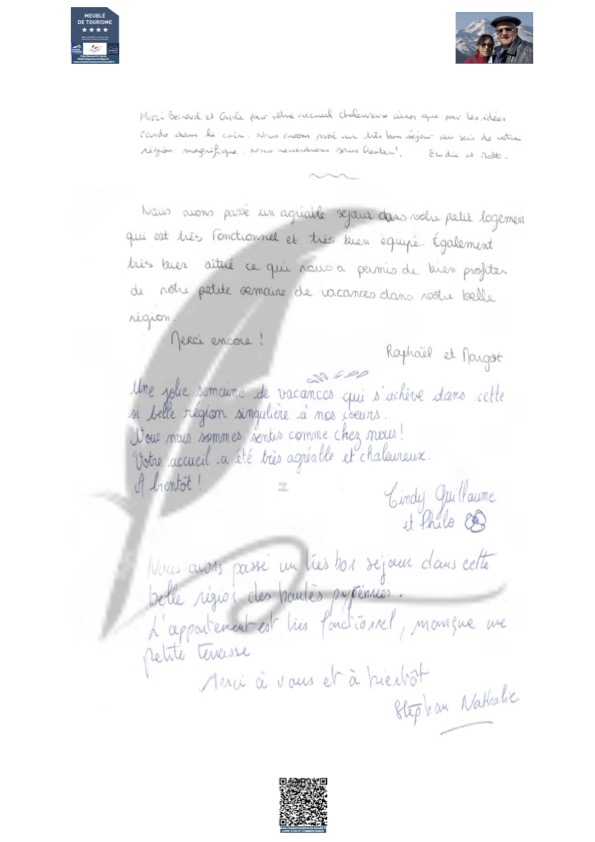 MEUBLÉ
DE TOURISME
★★★★
Merci Bernard et Carole pour votre accueil chaleureux ainsi que pour les idées
rando dans le coin. Nous avons passé un très bon séjour au sein de votre
région magnifique. Nous reviendrons sans hésiter! Elodie et
Nous avons passé un agréable séjour dans votre petit logement
qui est très fonctionnel et très bien équipé. Également
très bien situé ce qui nous a permis de bien profiter
de notre petite semaine de vacances dans votre belle
région.
Merci encore !
Raphaël et Margot
Une jolie semaine de vacances qui s'achève dans cette
si belle région singulière à nos coeurs.
Nous nous sommes sentis comme chez nous!
Votre accueil a été très agréable et chaleureux.
A bientôt !
Cindy Guillaume
et Philo
Nous avons passé un très bon séjour dans cette
belle région des hautes pyrénées.
L'appartement est très fonctionnel, manque une
petite terrasse
Merci à vous et à bientôt
Stéphan Nathalie